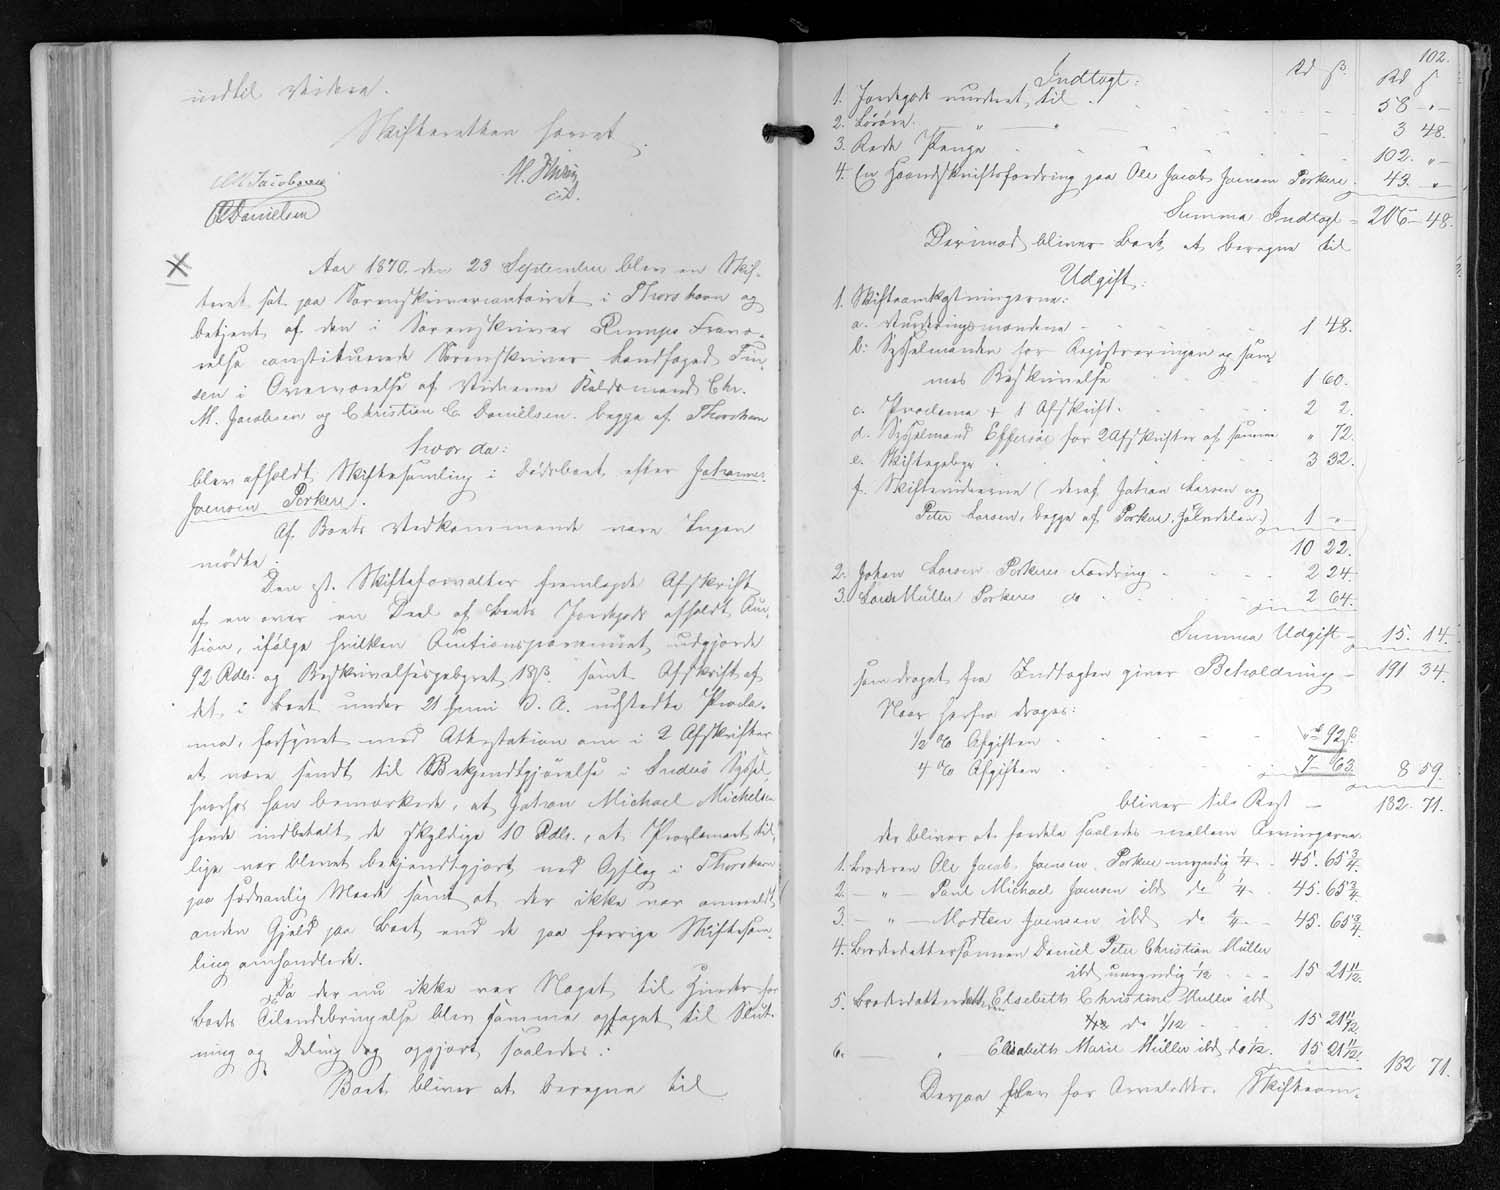 indtil Videre.
Skifteretten hævet.
CM Jacobsen
H. Finsen
cst.
CDanielsen
Aar 1870 den 23 September blev en Skif-
teret sat paa Sorenskrivercontoiret i Thorshavn og
betjent af den i Sorenskriver Rumps Fravæ-
relse constituerede Sorenskriver Landfoged Fin-
sen i Overværelse af Vidnerne Raadsmand Chr.
M. Jacobsen og Christian C Danielsen begge af Thorshavn
hvor da:
blev afholdt Skiftesamling i Dødsboet efter Johannes
Joensen Porkere.
Af Boets Vedkommende vare Ingen
mødte.
Den st. Skifteforvalter fremlagde Afskrift
af en over en Deel af Boets Jordegods afholdt Auc-
tion, ifølge hvilken Auctionsprovenuet udgjorde
92 Rdlr. og Beskrivelsesgebyret 18ß samt Afskrift af
det i Boet under 21 Juni d. A. udstedte Procla-
ma, forsynet med Attestation om i 2 Afskrifter
at være sendt til Bekjendtgjørelse i Suderø Syssel,
hvorhos han bemærkede, at Johan Michael Michelsen
havde indbetalt de skyldige 10 Rdlr., at Proclamaet til-
lige var blevet bekjendtgjort ved Opslag i Thorshavn
paa sædvanlig Maade samt at der ikke var anmeldt
anden Gjæld paa Boet end de paa forrige Skiftesam-
ling omhandlede.
Da der nu ikke var Noget til Hinder for
Boets Tilendebringelse blev samme optaget til Slut-
ning og Deling og opgjort saaledes:
Boet bliver at beregne til
102.
Indtægt: Rd ß. Rd ß
1. Jordegods vurderet til 58 - " -
2. Løsøre - " - " 3 48.
3. Rede Penge 102. "
4. En Haandskriftsfordring paa Ole Jacob Joensen Porkere. 43. "
Summa Indtægt = 206 - 48.
Derimod bliver Boet at beregne til
Udgift:
1. Skifteomkostningerne:
a. Vurderingsmændene - 1 48.
b. Sysselmanden for Registreringen og sam-
mes Beskrivelse 1 60.
c. Proclama + 1 Afskrift. 2 2.
d. Sysselmand Effersøe for 2 Afskrifter af samme " 72.
e. Skiftegebyr 3 32.
f. Skiftevidnerne (deraf Johan Larsen og
Peter Larsen, begge af Porkere, Halvdelen) 1 "
10 22.
2. Johan Larsen Porkeres Fordring 2 24
3. Lars Müller Porkeres do 2 64.
Summa Udgift - 15. 14.
som draget fra Indtægten giver Beholdning - 191 34.
Naar herfra drages:
1/2 % Afgiften " 92 ß.
4 % Afgiften 7 - 63. 8 59.
bliver til Rest - 182. 71.
der bliver at fordele saaledes mellem Arvingerne
1. Broderen Ole Jacob Joensen Porkere myndig 1/4. 45. 65 3/4.
2. - " - Poul Michael Joensen ibd do 1/4. 45. 65 3/4.
3. - " - Morten Joensen ibd do 1/4 - 45. 65 3/4.
4. Broderdattersønnen Daniel Peter Christian Müller
ibd umyndig 1/12 - 15 21 11/12.
5. Broderdatterdatteren Elsebeth Christine Müller ibd
do 1/12 15 21 11/12
6. - " - Elisabeth Marie Müller ibd do 1/12. 15 21 11/12. 182 71.
Derpaa blev for Arveladte. Skifteom-